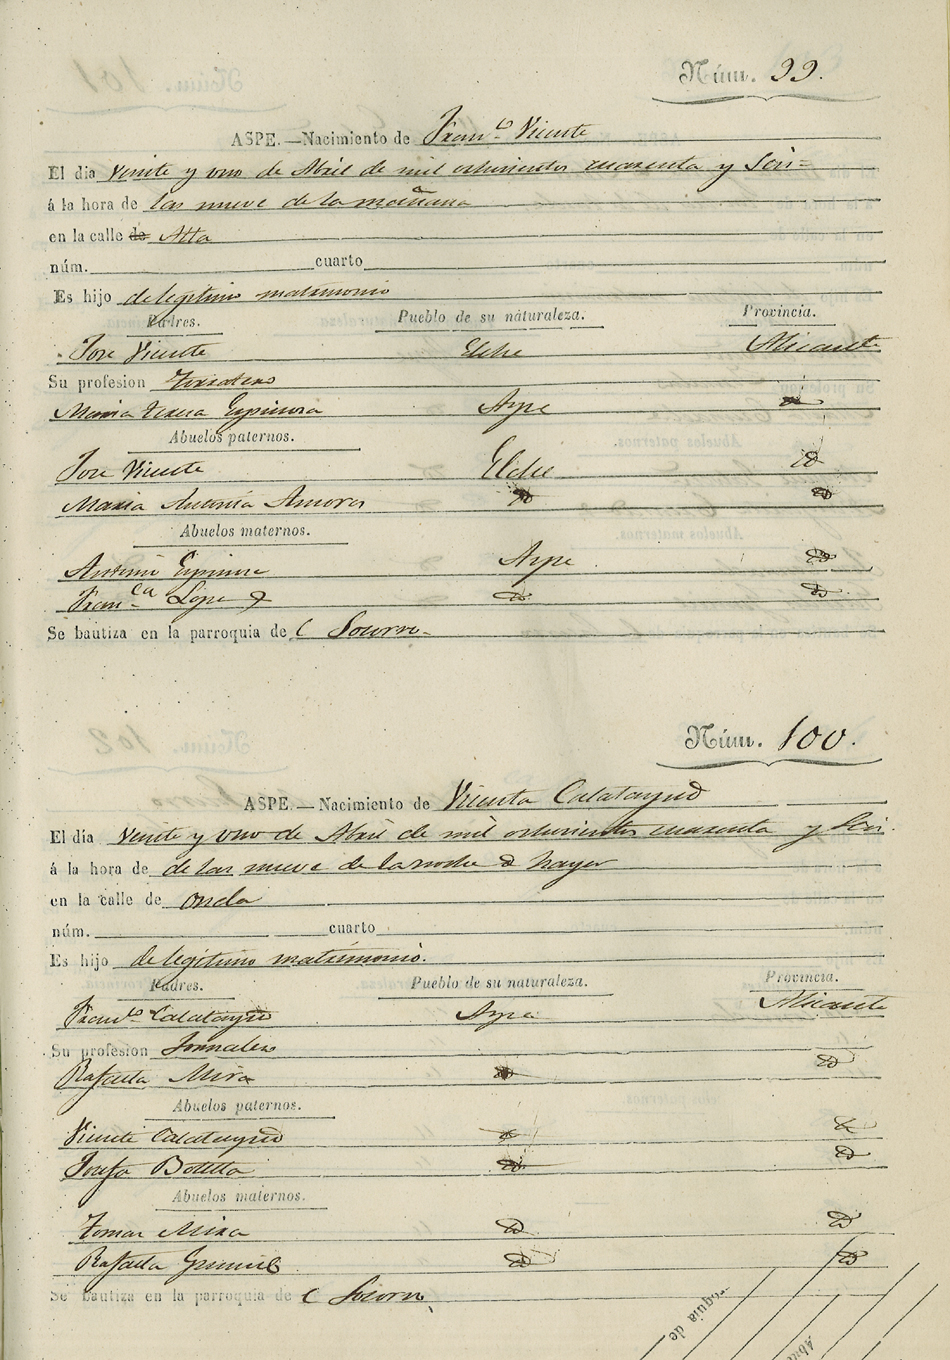 Núm. 99.
ASPE.—Nacimiento de Franco Vicente
El dia Veinte y uno de Abril de mil ochocientos cuarenta y Seis=
á la hora de las nueve de la mañana
en la calle de Alta
núm. cuarto
Es hijo de legitimo matrimonio
Padres. Pueblo de su naturaleza. Provincia.
Jose Vicente Elche Alicante
Su profesion
Maria Teresa Espinosa Aspe
Abuelos paternos.
Jose Vicente Elche Id
Maria Antonia Amoros Id Id
Abuelos maternos.
Antonio Espinosa Aspe Id
Franca Lopez Id Id
Se bautiza en la parroquia de Socorro
Núm. 100.
ASPE.—Nacimiento de Vicenta Calatayud
El dia Veinte y uno de Abril de mil ochocientos cuarenta y Seis.
á la hora de de las nueve de la noche de hayer
en la calle de Onda
núm. cuarto
Es hijo de legitimo matrimonio.
Padres. Pueblo de su naturaleza. Provincia.
Franco Calatayud Aspe Alicante
Su profesion Jornalero
Rafaela Mira Id Id
Abuelos paternos.
Vicente Calatayud Id Id
Josefa Botella Id Id
Abuelos maternos.
Tomas Mira Id Id
Rafaela Id Id
Se bautiza en la parroquia de Socorro